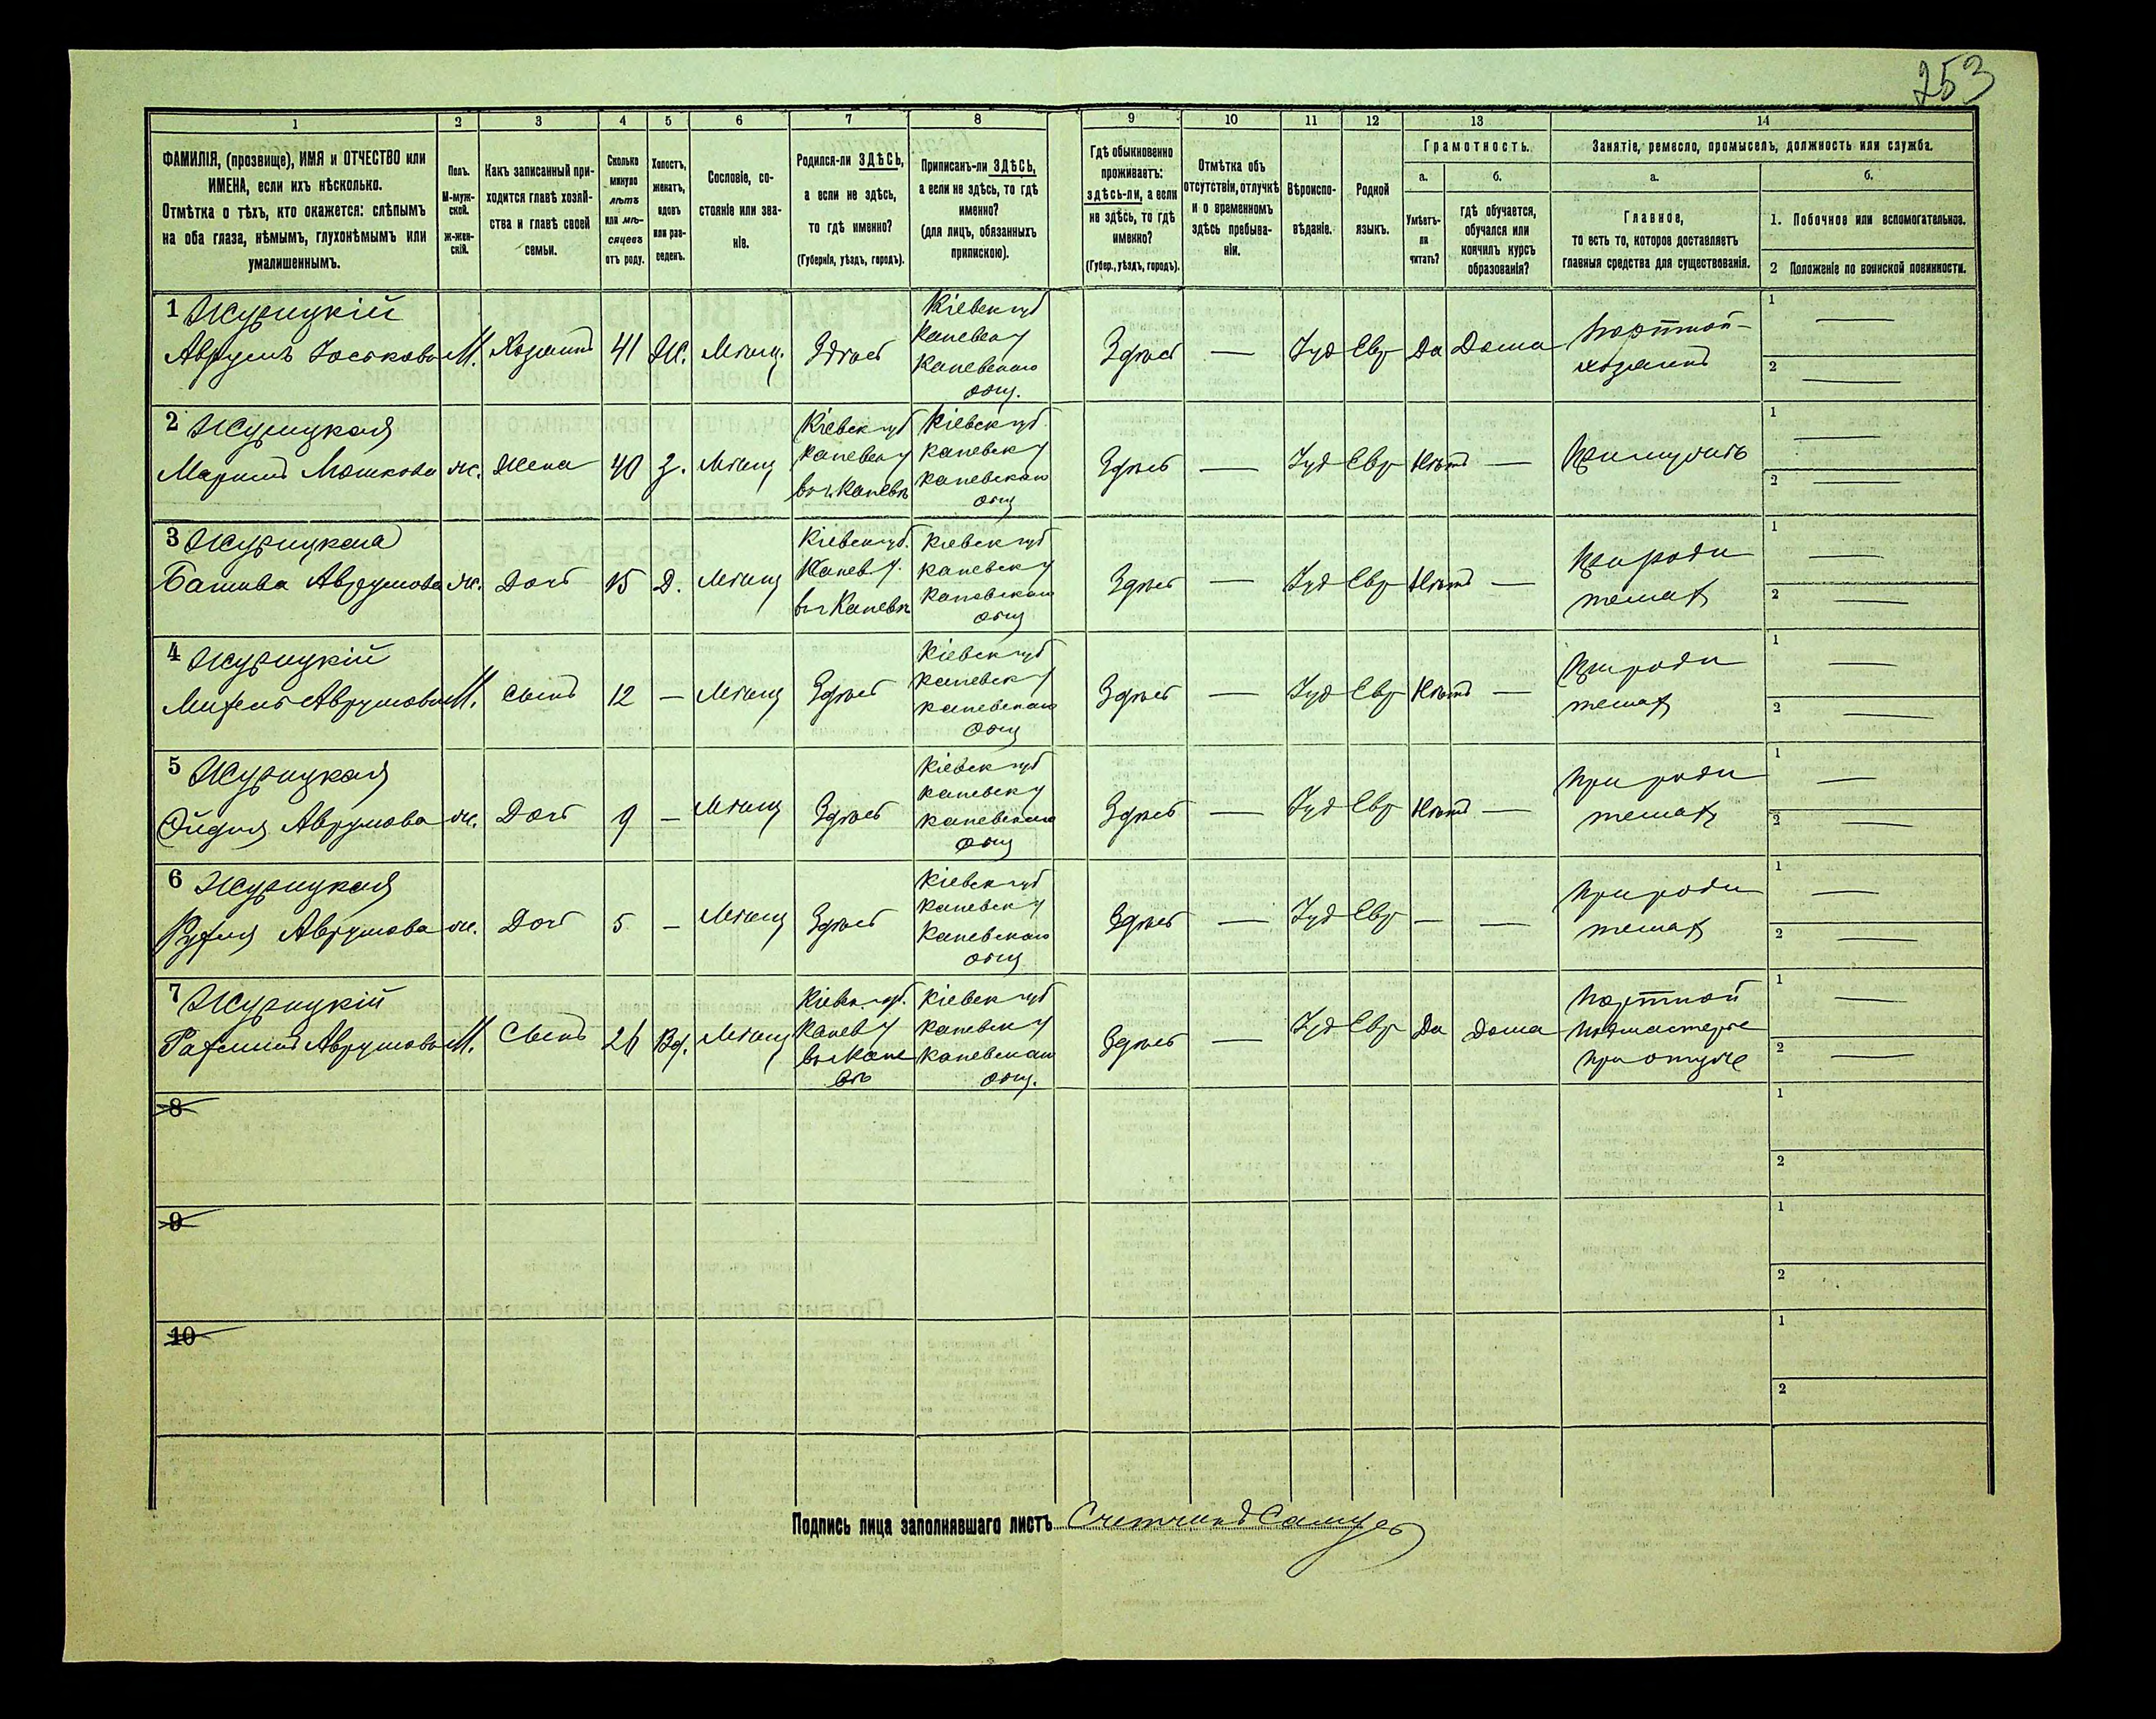 253
1
2
3
4
5
6
7
8
9
10
11
12
13
14
ФАМИЛІЯ, (прозвище), ИМЯ и ОТЧЕСТВО или
ИМЕНА, если ихъ нѣсколько.
Отмѣтка о тѣхъ, кто окажется: слѣпымъ
на оба глаза, нѣмымъ, глухонѣмымъ или
умалишеннымъ.
Полъ.
М-муж-
ской.
Ж-жен-
скій.
Какъ записанный при-
ходится главѣ хозяй-
ства и главѣ своей
семьи.
Сколько
минуло
лѣтъ
или мѣ-
сяцевъ
отъ роду.
Холостъ,
женатъ,
вдовъ
или раз-
веденъ.
Сословіе, со-
стояніе или зва-
ніе.
Родился-ли ЗДѢСЬ,
а если не здѣсь,
то гдѣ именно?
(Губернія, уѣздъ, городъ).
Приписанъ-ли ЗДѢСЬ,
а если не здѣсь, то гдѣ
именно?
(для лицъ, обязанныхъ
припискою).
Гдѣ обыкновенно
проживаетъ:
здѣсь-ли, а если
не здѣсь, то гдѣ
именно?
(Губер., уѣздъ, городъ).
Отмѣтка объ
отсутствіи, отлучкѣ
и о временномъ
здѣсь пребыва-
ніи.
Вѣроиспо-
вѣданіе.
Родной
языкъ.
Грамотность.
а.
Умѣетъ-
ли
читать?
б.
гдѣ обучается,
обучался или
кончилъ курсъ
образованія?
Занятіе, ремесло, промыселъ, должность или служба.
а.
Главное,
то есть то, которое доставляетъ
главныя средства для существованія.
б.
1. Побочное или вспомогательное.
2 Положеніе по воинской повинности.
1 Журицкій
Аврумъ Іоськовъ М. Хозяинъ 41 Ж. Мѣщ. Здѣсь
Кіевск губ
Каневск у
Каневскаго
общ.
Здѣсь — Іуд Евр Да Дома
Портной-
хозяинъ
1 —
2 —
2 Журицкая
Мошкова ж. Жена 40 З. Мѣщ
Кіевск губ
Каневск у
въ г. Каневѣ
Кіевск губ
Каневск у
Каневскаго
общ
Здѣсь — Іуд Евр Нѣтъ —
При мужѣ
1 —
2 —
3 Журицкая
Аврумова ж. Дочь 15 Д. Мѣщ
Кіевск губ.
Канев у.
въ г Каневѣ
Кіевск губ
Каневск у
Каневскаго
общ
Здѣсь — Іуд Евр Нѣтъ —
При роди
теляхъ
1 —
2 —
4 Журицкій
Аврумовъ М. Сынъ 12 — Мѣщ Здѣсь
Кіевск губ
Каневск у
Каневскаго
общ
Здѣсь — Іуд Евр Нѣтъ —
При роди
теляхъ
1 —
2 —
5 Журицкая
Аврумова ж. Дочь 9 — Мѣщ Здѣсь
Кіевск губ
Каневск у
Каневскаго
общ
Здѣсь — Іуд Евр Нѣтъ —
При роди
теляхъ
1 —
2 —
6 Журицкая
Рухля Аврумова ж. Дочь 5 — Мѣщ Здѣсь
Кіевск губ
Каневск у
Каневскаго
общ
Здѣсь — Іуд Евр — —
При роди
теляхъ
1 —
2 —
7 Журицкій
Аврумовъ М. Сынъ Вд. Мѣщ
Кіевск. губ.
Канев у
въ г Кане
вѣ
Кіевск губ
Каневск у
Каневскаго
общ.
Здѣсь — Іуд Евр Да Дома
Портной
подмастерье
при отцѣ
1 —
2 —
8
1
2
9
1
2
10
1
2
Подпись лица заполнявшаго листъ Счетчикъ